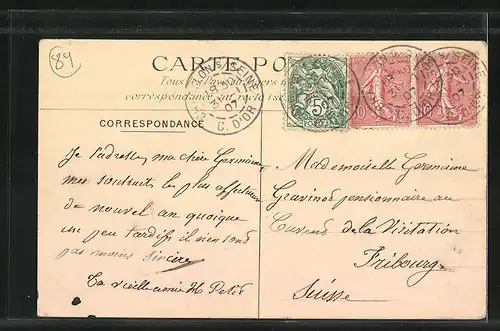 89
CARTE PO
CORRESPONDANCE
CHATILLON S SEINE
C. D'OR
07
5c
10
10
Je t'adresse, ma chère Germaine
mes souhaits les plus affectueux
de nouvel an quoique
un peu tardifs il n'en sont
pas moins sincère
Ta vieille amie M Petit
Mademoiselle Germaine
pensionnaire au
Couvend de la Visitation
Fribourg
Suisse